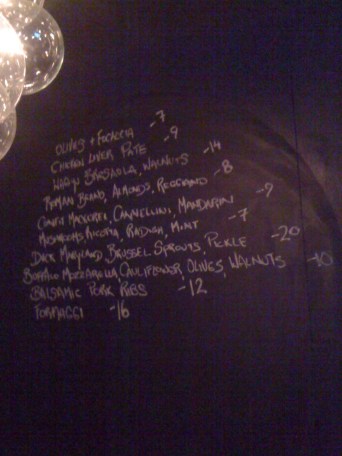 OLIVES + FOCACCIA -7
CHICKEN LIVER PATE -9
WAGYU BRESAOLA, WALNUTS -14
ROMAN BEANS, ALMONDS, -8
MACKEREL, CANNELLINI, MANDARIN -9
MUSHROOMS, RADISH, MINT -7
DUCK BRUSSEL SPROUTS, PICKLE -20
BUFFALO MOZZARELLA, CAULIFLOWER, OLIVES, WALNUTS -10
BALSAMIC PORK RIBS -12
FORMAGGI -16